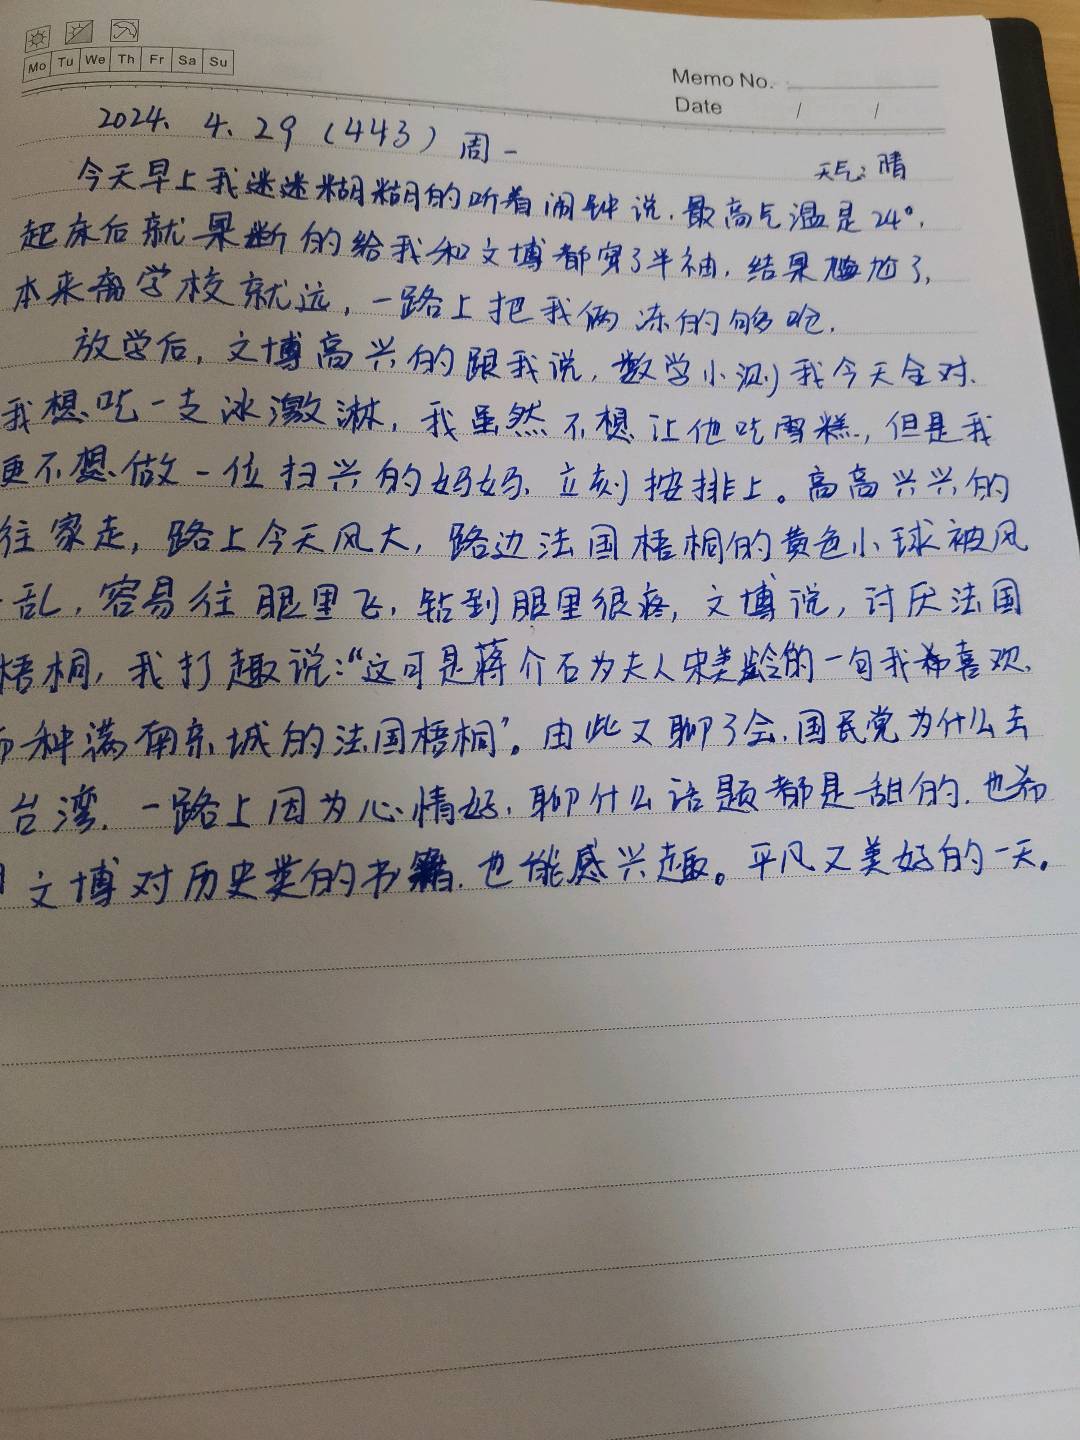 Mo Tu We Th Fr Sa Su
Memo No.
Date / /
2024. 4. 29 (443) 周一
天气: 晴
今天早上我迷迷糊糊的听着闹钟说, 最高气温是24°,
起床后就果断的给我和文博都穿了半袖, 结果尴尬了,
本来离学校就远, 一路上把我俩冻的够呛.
放学后, 文博高兴的跟我说, 数学小测我今天全对.
我想吃一支冰激淋, 我虽然不想让他吃雪糕, 但是我
更不想做一位扫兴的妈妈. 立刻按排上。高高兴兴的
往家走, 路上今天风大, 路边法国梧桐的黄色小球被风
乱, 容易往眼里飞, 钻到眼里很疼, 文博说, 讨厌法国
梧桐, 我打趣说:“这可是蒋介石为夫人宋美龄的一句我喜欢.
而种满南京城的法国梧桐”。由此又聊了会, 国民党为什么去
台湾. 一路上因为心情好, 聊什么话题都是甜的. 也希
文博对历史类的书籍. 也能感兴趣。平凡又美好的一天。